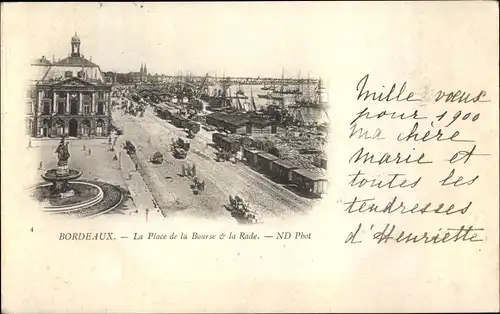 Mille vœux
pour 1900
ma chère
marie et
toutes les
tendresses
d'Henriette
4
BORDEAUX. - La Place de la Bourse & la Rade. - ND Phot